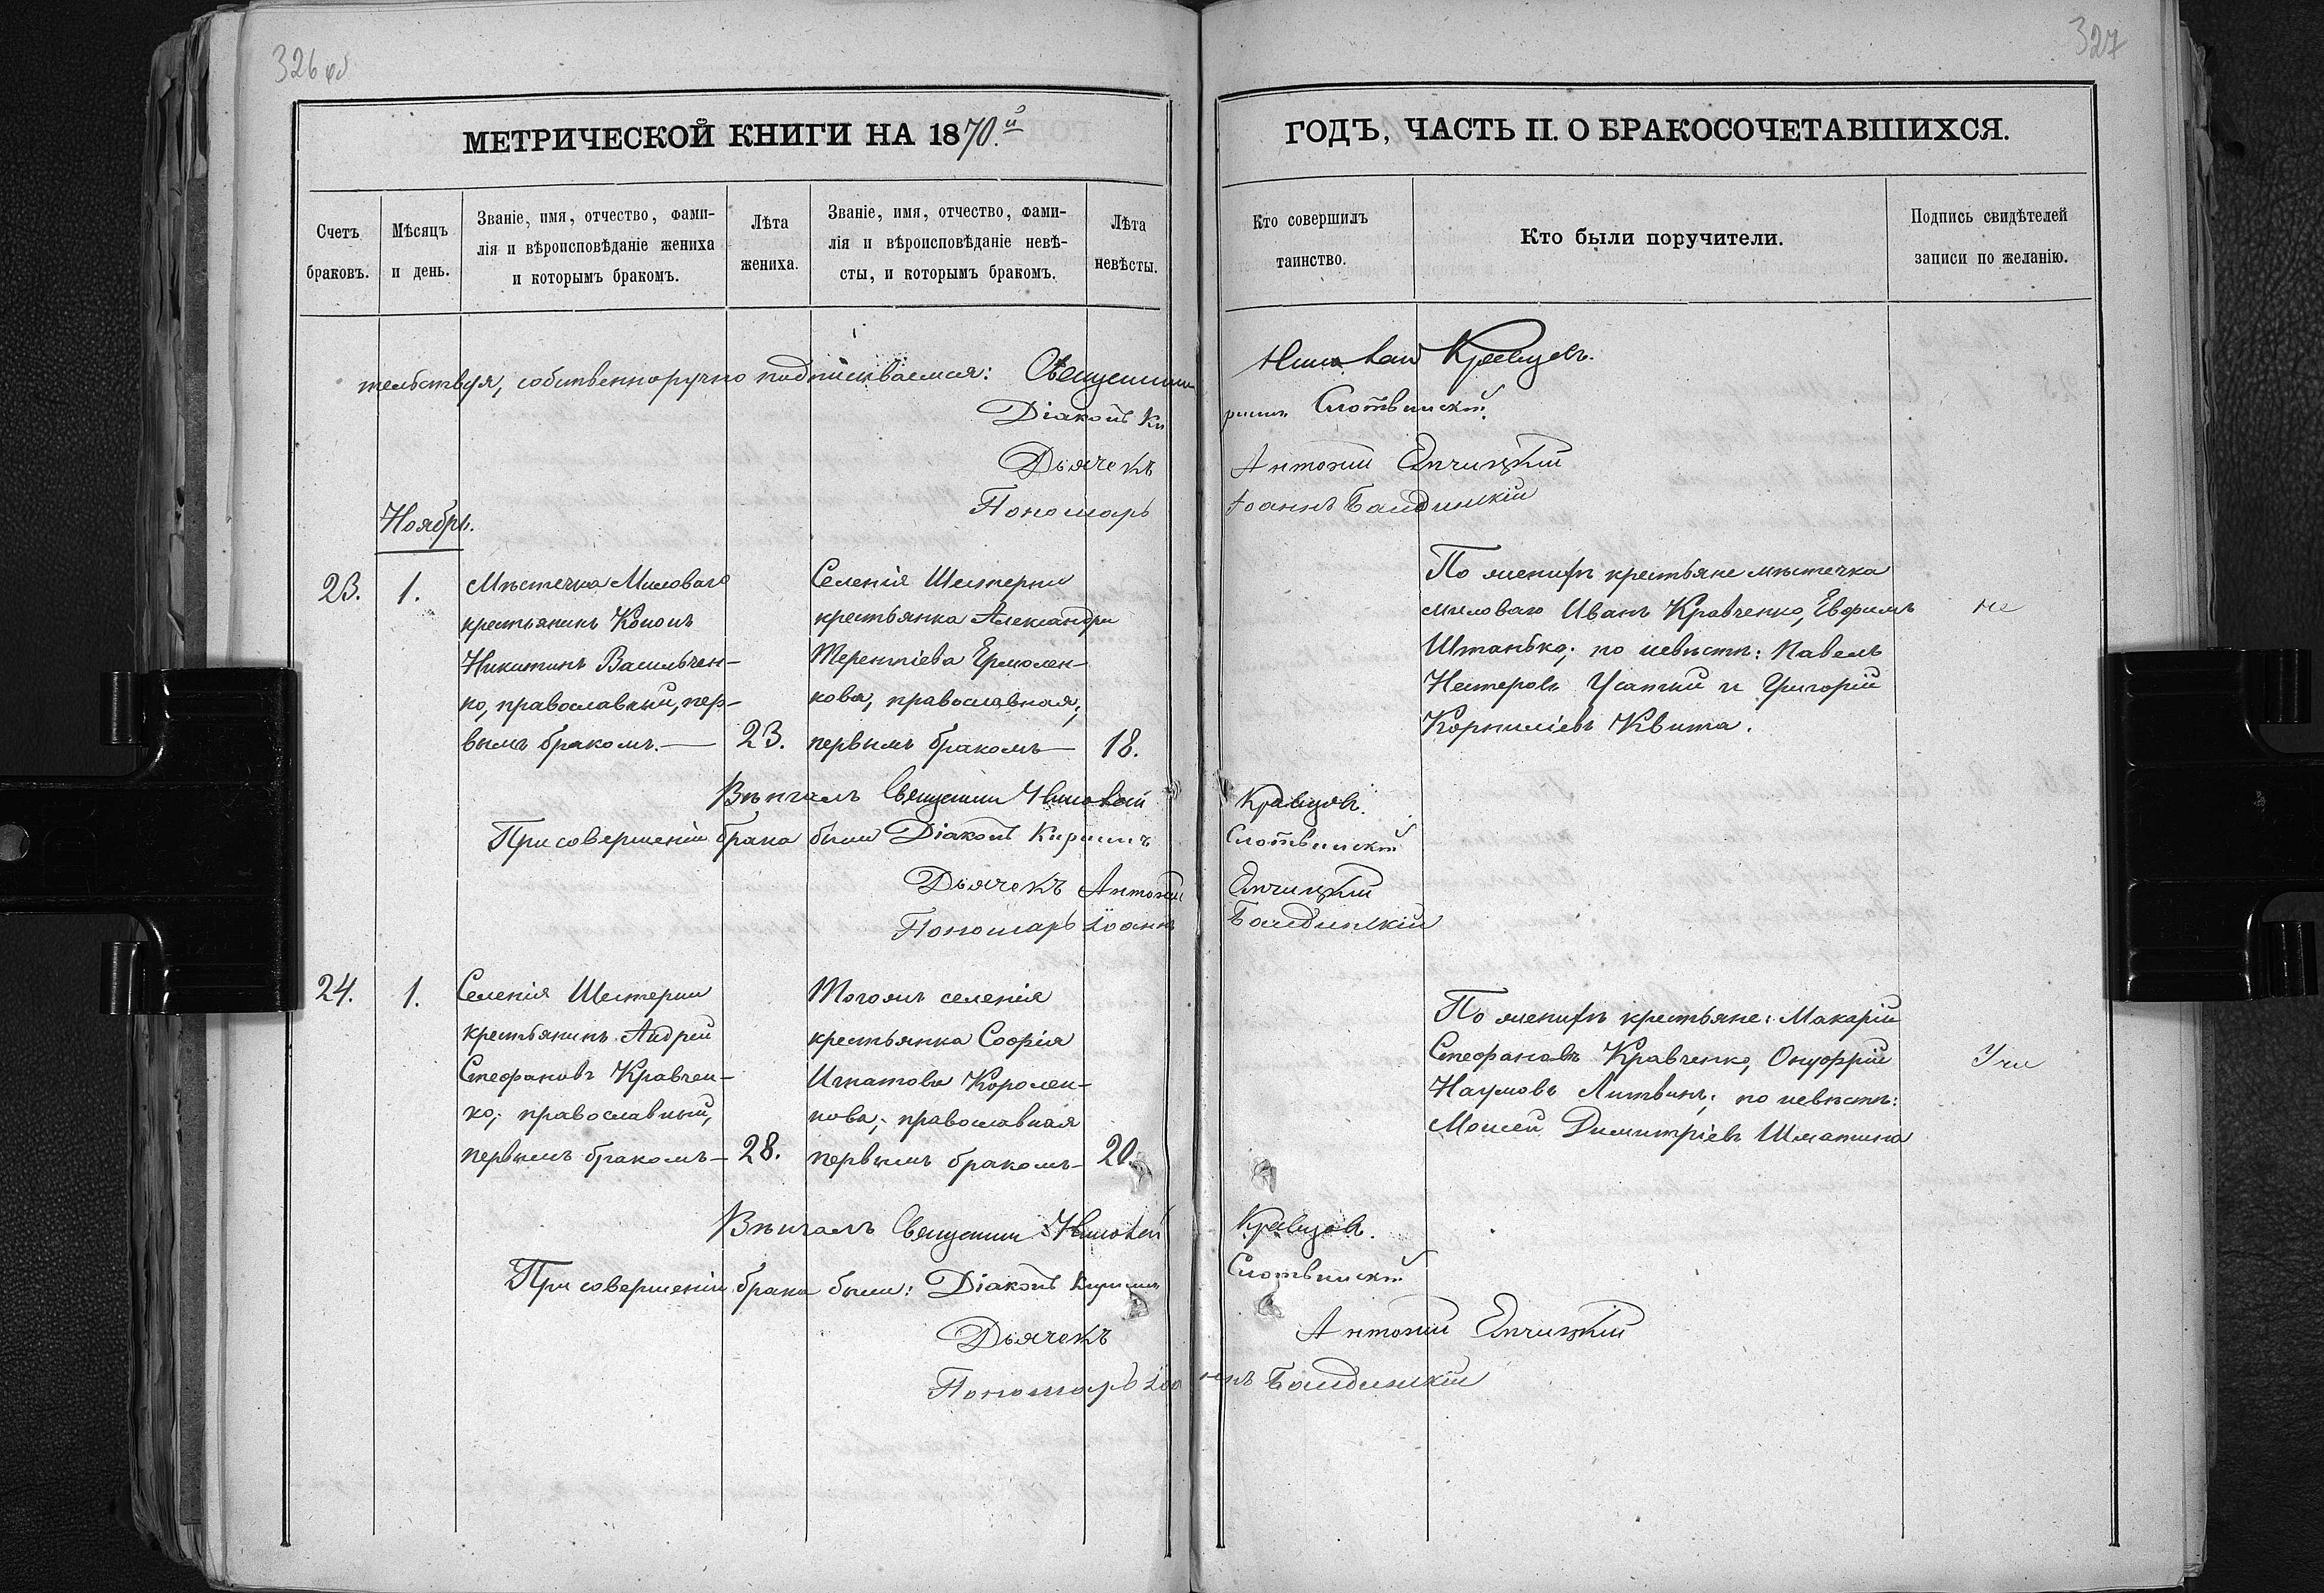 326 об
327
МЕТРИЧЕСКОЙ КНИГИ НА 1870.й
ГОДЪ, ЧАСТЬ II. О БРАКОСОЧЕТАВШИХСЯ.
Счетъ браковъ.
Мѣсяцъ и день.
Званіе, имя, отчество, фами-
лія и вѣроисповѣданіе жениха
и которымъ бракомъ.
Лѣта жениха.
Званіе, имя, отчество, фами-
лія и вѣроисповѣданіе невѣ-
сты, и которымъ бракомъ.
Лѣта невѣсты.
Кто совершилъ таинство.
Кто были поручители.
Подпись свидѣтелей
записи по желанію.
тельствуя, собственноручно подписываемся: Священникъ Кравцовъ.
Діаконъ Кирилъ
Дьячекъ Антоній
Пономарь Іоаннъ
Ноябрь.
23.
1.
Мѣстечка Миловаго
крестьянинъ Кононъ
Никитинъ Васильчен-
ко, православный, пер-
вымъ бракомъ.—
23.
Селенія Шестерни
крестьянка Александра
Терентіева Ермолен-
кова, православная;
первымъ бракомъ—
18.
По женихѣ крестьяне мѣстечка
миловаго Иванъ Кравченко, Евфимъ
Штанько; по невѣстѣ: Павелъ
Нестеровъ Усатый и Григорій
Корниліевъ Квита.
не
Вѣнчалъ Священникъ Кравцовъ.
При совершеніи брака были Діаконъ Кирилъ
Дьячекъ Антоній
Пономарь Іоаннъ
24.
1.
Селенія Шестерни
крестьянинъ Андрей
Стефановъ Кравчен-
ко; православный,
первымъ бракомъ—
28.
Тогожъ селенія
крестьянка Софія
Игнатова Королен-
кова; православная
первымъ бракомъ—
20.
По женихѣ крестьяне: Макарій
Стефановъ Кравченко, Онуфрій
Наумовъ Литвинъ; по невѣстѣ:
Моисей Димитріевъ Шматино
Вѣнчалъ Священникъ Кравцовъ.
При совершеніи брака были: Діаконъ Кирилъ
Дьячекъ Антоній
Пономарь Іоаннъ